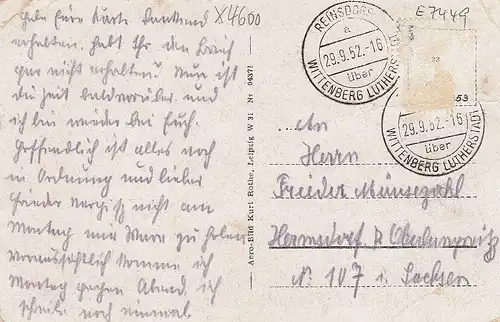 X4600
E7449
habe Eure Karte dankend
erhalten. Habt Ihr den Brief
gar nicht erhalten? Nun ist
die Zeit bald vorüber und
ich bin wieder bei Euch.
Hoffendlich ist alles noch
in Ordnung und lieber
Frieder vergiss nicht am
Montag nur Ware zu holen
voraussichtlich komme ich
Montag gegen Abend ich
schreibe noch einmal
Aero-Bild Kurt Rothe, Leipzig W 31 Nr
REINSDORF
a
29.9.52.-16
über
WITTENBERG LUTHERSTADT
53
29.9.52.-16
über
WITTENBERG LUTHERSTADT
An
Herrn
Frieder
Hermsdorf
N. 107 i. Sachsen